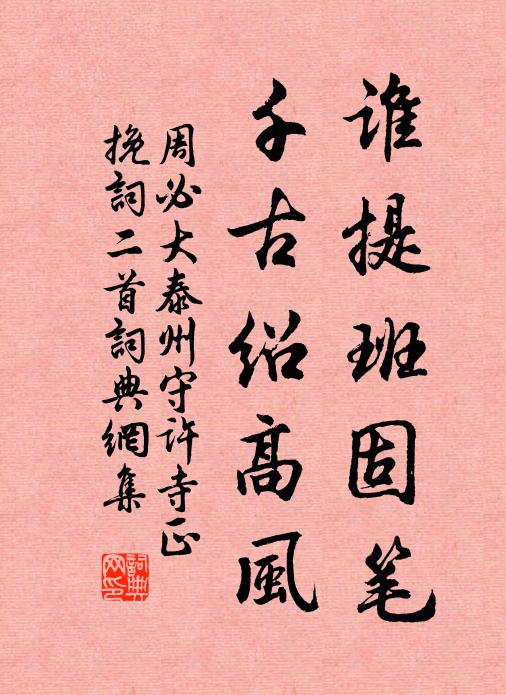 谁提班固笔
千古绍高風
周必大泰州守许寺正
挽詞二首詞典網集
詞典网印